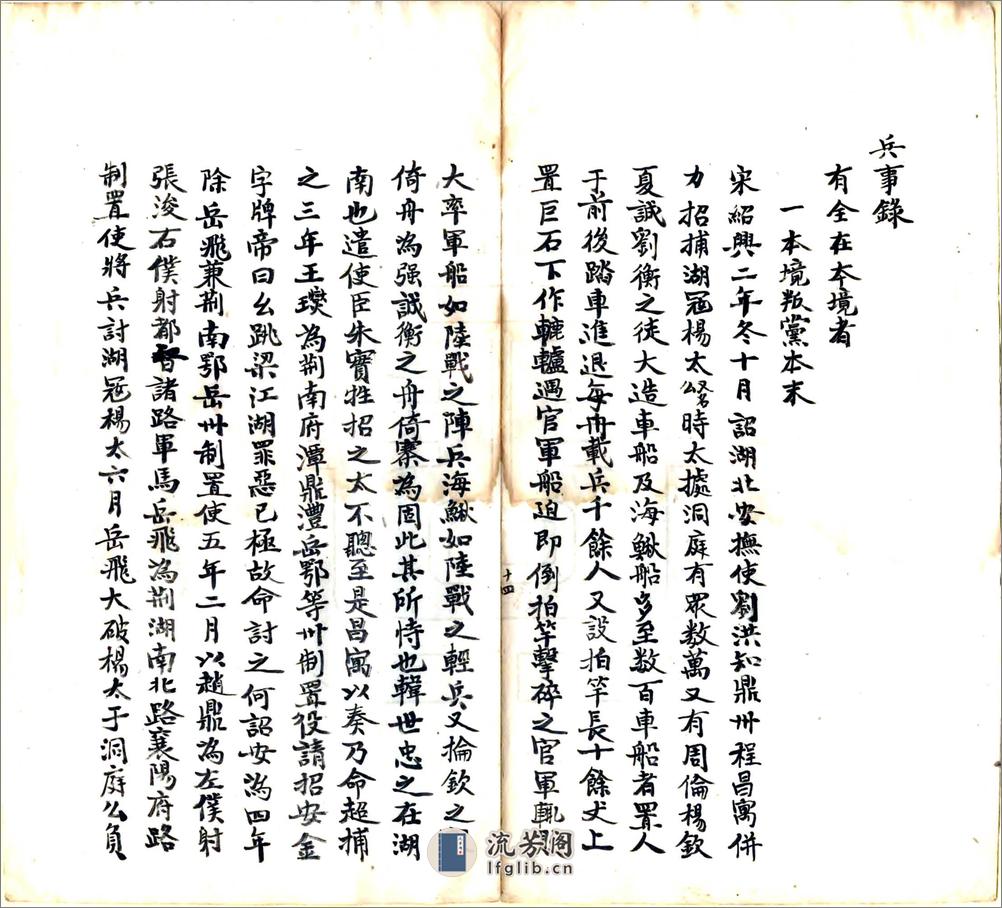 兵事錄
有全在本境者
一本境叛黨本末
宋紹興二年冬十月詔湖北安撫使劉洪知鼎州程昌寓併
力招捕湖冦楊太公名時太據洞庭有眾数萬又有周倫楊欽
夏誠劉衡之徒大造車船及海鰍船多至数百車船者置人
于前後踏車進退每舟載兵千餘人又設拍竿長十餘丈上
置巨石下作轆轤遇官軍船迫即倒拍竿擊碎之官軍輒
大率軍船如陸戰之陣兵海鰍如陸戰之輕兵又掄欽之
倚舟為强誠衡之舟倚寨為固此其所恃也韓世忠之在湖
南也遣使臣朱實牲招之太不聽至是昌寓以奏乃命超捕
之三年王𤫉為荆南府潭鼎澧岳鄂等州制置役請招安金
字牌帝曰幺跳梁江湖罪惡已極故命討之何詔安為四年
除岳飛兼荆南鄂岳州制置使五年二月以趙鼎為左僕射
張浚右僕射都督諸路軍馬岳飛為荆湖南北路襄陽府路
制置使將兵討湖冦楊太六月岳飛大破楊太于洞庭幺負
十四
流芳阁
lfglib.cn